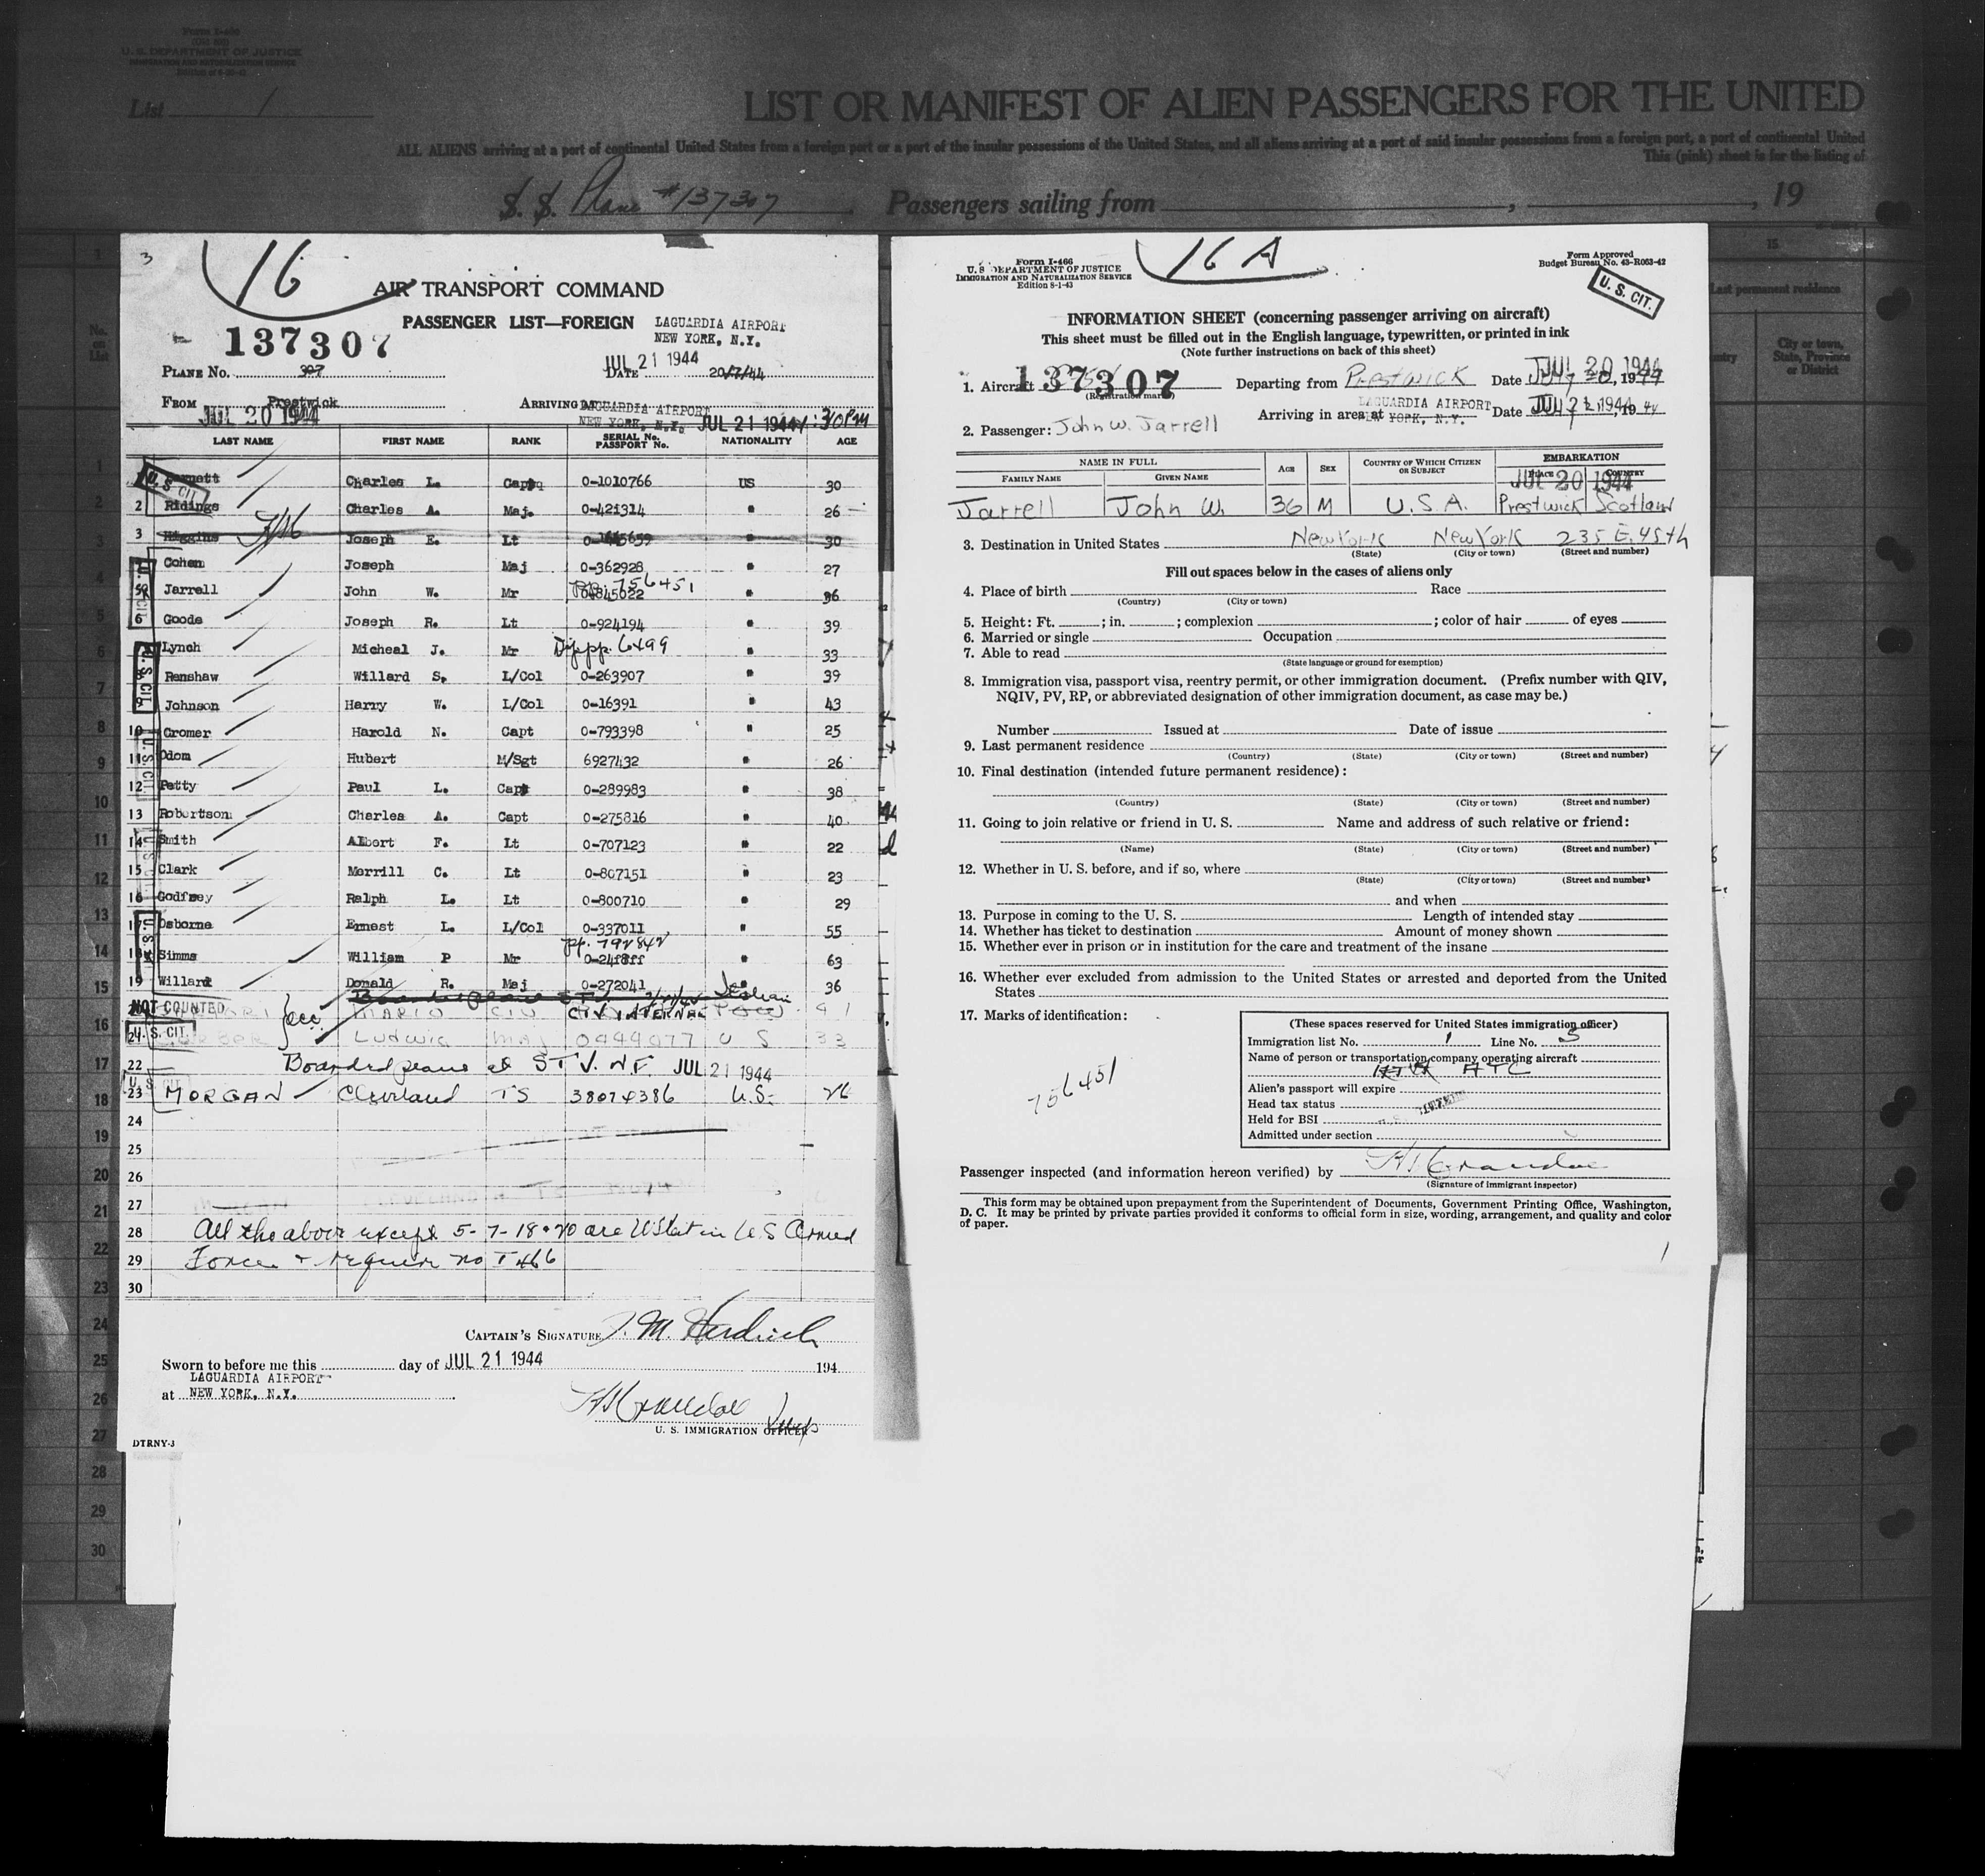 Form I-466
U. S. DEPARTMENT OF JUSTICE
IMMIGRATION AND NATURALIZATION SERVICE
List 1
LIST OR MANIFEST OF ALIEN PASSENGERS FOR THE UNITED
ALL ALIENS arriving at a port of continental United States from a foreign port or a port of the insular possessions of the United States, and all aliens arriving at a port of said insular possessions from a foreign port, a port of continental United
This (pink) sheet is for the listing of
S. S. Plane #137307 Passengers sailing from , , 19
3
16
AIR TRANSPORT COMMAND
PASSENGER LIST—FOREIGN
LAGUARDIA AIRPORT
NEW YORK, N.Y.
137307
JUL 21 1944
PLANE No. 307 DATE 20/7/44
FROM Prestwick ARRIVING LAGUARDIA AIRPORT
JUL 20 1944 NEW YORK, N.Y. JUL 21 1944 4:30 PM
LAST NAME FIRST NAME RANK SERIAL No. PASSPORT No. NATIONALITY AGE
U. S. CIT. Charles L. Capt 0-1010766 US 30
2 Ridings Charles A. Maj. 0-421314 " 26
3 Higgins Joseph E. Lt " 30
Cohen Joseph Maj 0-362928 " 27
5 Jarrell John W. Mr pp. 756451 " 36
6 Goode Joseph R. Lt 0-924194 " 39
Lynch Micheal J. Mr Dip pp. 6499 " 33
8 Renshaw Willard S. L/Col 0-263907 " 39
9 Johnson Harry W. L/Col 0-16391 " 43
10 Cromer Harold N. Capt 0-793398 " 25
11 Odom Hubert M/Sgt 6927432 " 26
12 Petty Paul L. Capt 0-289983 " 38
13 Robertson Charles A. Capt 0-275816 " 40
14 Smith Albert F. Lt 0-707123 " 22
15 Clark Merrill C. Lt 0-807151 " 23
16 Godfrey Ralph L. Lt 0-800710 " 29
17 Osborne Ernest L. L/Col 0-337011 " 55
18 Simms William P Mr pp. 792842 " 63
19 Willard Donald R. Maj 0-272041 " 36
NOT COUNTED MARIO CIV CIV INTERNAL Italian 41
21 U. S. CIT. Ludwig MAJ 0444077 U S 33
22 Boarded plane at STV. NF. JUL 21 1944
23 MORGAN Cleveland TS 38074386 U.S. 26
24
25
26
27
28 All the above except 5-7-18+20 are US Cit in U.S Armed
29 Forces + require no I 466
30
CAPTAIN'S SIGNATURE
Sworn to before me this day of JUL 21 1944 194
LAGUARDIA AIRPORT
at NEW YORK, N.Y.
U. S. IMMIGRATION OFFICER
DTRNY-3
16 A
Form I-466
U. S. DEPARTMENT OF JUSTICE
IMMIGRATION AND NATURALIZATION SERVICE
Edition 8-1-43
Form Approved
Budget Bureau No. 43-R063-42
U. S. CIT.
INFORMATION SHEET (concerning passenger arriving on aircraft)
This sheet must be filled out in the English language, typewritten, or printed in ink
(Note further instructions on back of this sheet)
1. Aircraft 137307 Departing from Prestwick Date JUL 20 1944
(Registration marks)
Arriving in area at LAGUARDIA AIRPORT NEW YORK, N.Y. Date JUL 21 1944
2. Passenger: John W. Jarrell
NAME IN FULL AGE SEX COUNTRY OF WHICH CITIZEN OR SUBJECT EMBARKATION
FAMILY NAME GIVEN NAME PLACE COUNTRY
JUL 20 1944
Jarrell John W. 36 M U.S.A. Prestwick Scotland
3. Destination in United States New York New York 235 E. 45th
(State) (City or town) (Street and number)
Fill out spaces below in the cases of aliens only
4. Place of birth Race
(Country) (City or town)
5. Height: Ft. ; in. ; complexion ; color of hair of eyes
6. Married or single Occupation
7. Able to read
(State language or ground for exemption)
8. Immigration visa, passport visa, reentry permit, or other immigration document. (Prefix number with QIV,
NQIV, PV, RP, or abbreviated designation of other immigration document, as case may be.)
Number Issued at Date of issue
9. Last permanent residence
(Country) (State) (City or town) (Street and number)
10. Final destination (intended future permanent residence):
(Country) (State) (City or town) (Street and number)
11. Going to join relative or friend in U. S. Name and address of such relative or friend:
(Name) (State) (City or town) (Street and number)
12. Whether in U. S. before, and if so, where
(State) (City or town) (Street and number)
and when
13. Purpose in coming to the U. S. Length of intended stay
14. Whether has ticket to destination Amount of money shown
15. Whether ever in prison or in institution for the care and treatment of the insane
16. Whether ever excluded from admission to the United States or arrested and deported from the United
States
17. Marks of identification:
756451
(These spaces reserved for United States immigration officer)
Immigration list No. 1 Line No. 5
Name of person or transportation company operating aircraft
ATC
Alien's passport will expire
Head tax status
Held for BSI
Admitted under section
Passenger inspected (and information hereon verified) by
(Signature of immigrant inspector)
This form may be obtained upon prepayment from the Superintendent of Documents, Government Printing Office, Washington,
D. C. It may be printed by private parties provided it conforms to official form in size, wording, arrangement, and quality and color
of paper.
1